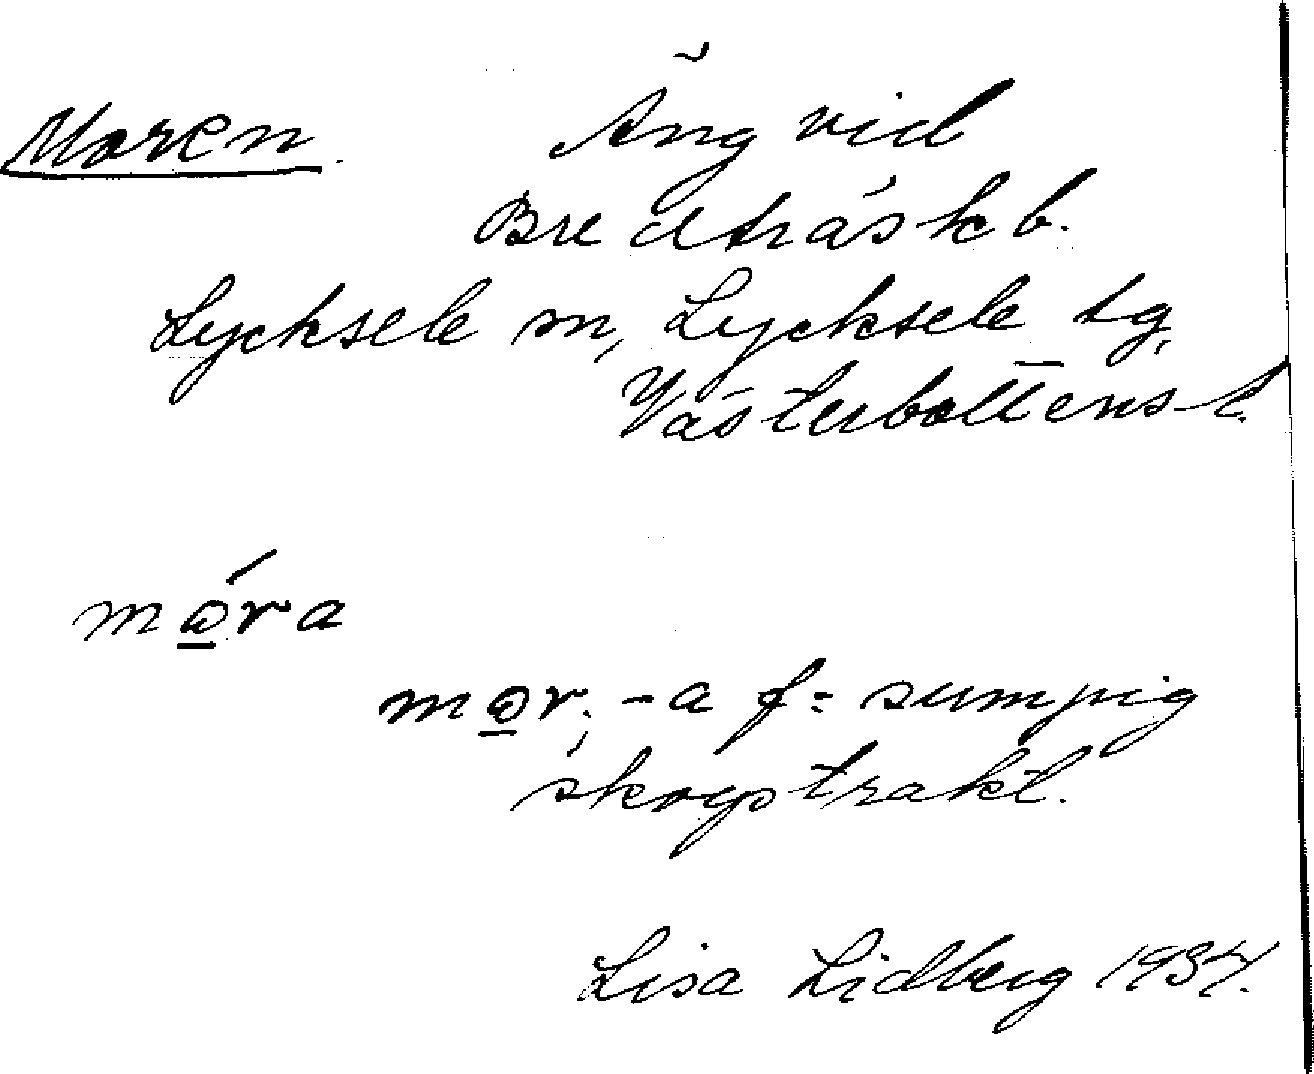 Moren. Äng vid
Bredträsk b.
Lycksele sn, Lycksele tg,
Västerbottens l.
mó̲ra
mo̲r, -a f = sumpig
skogstrakt.
Lisa Lidberg 1937.